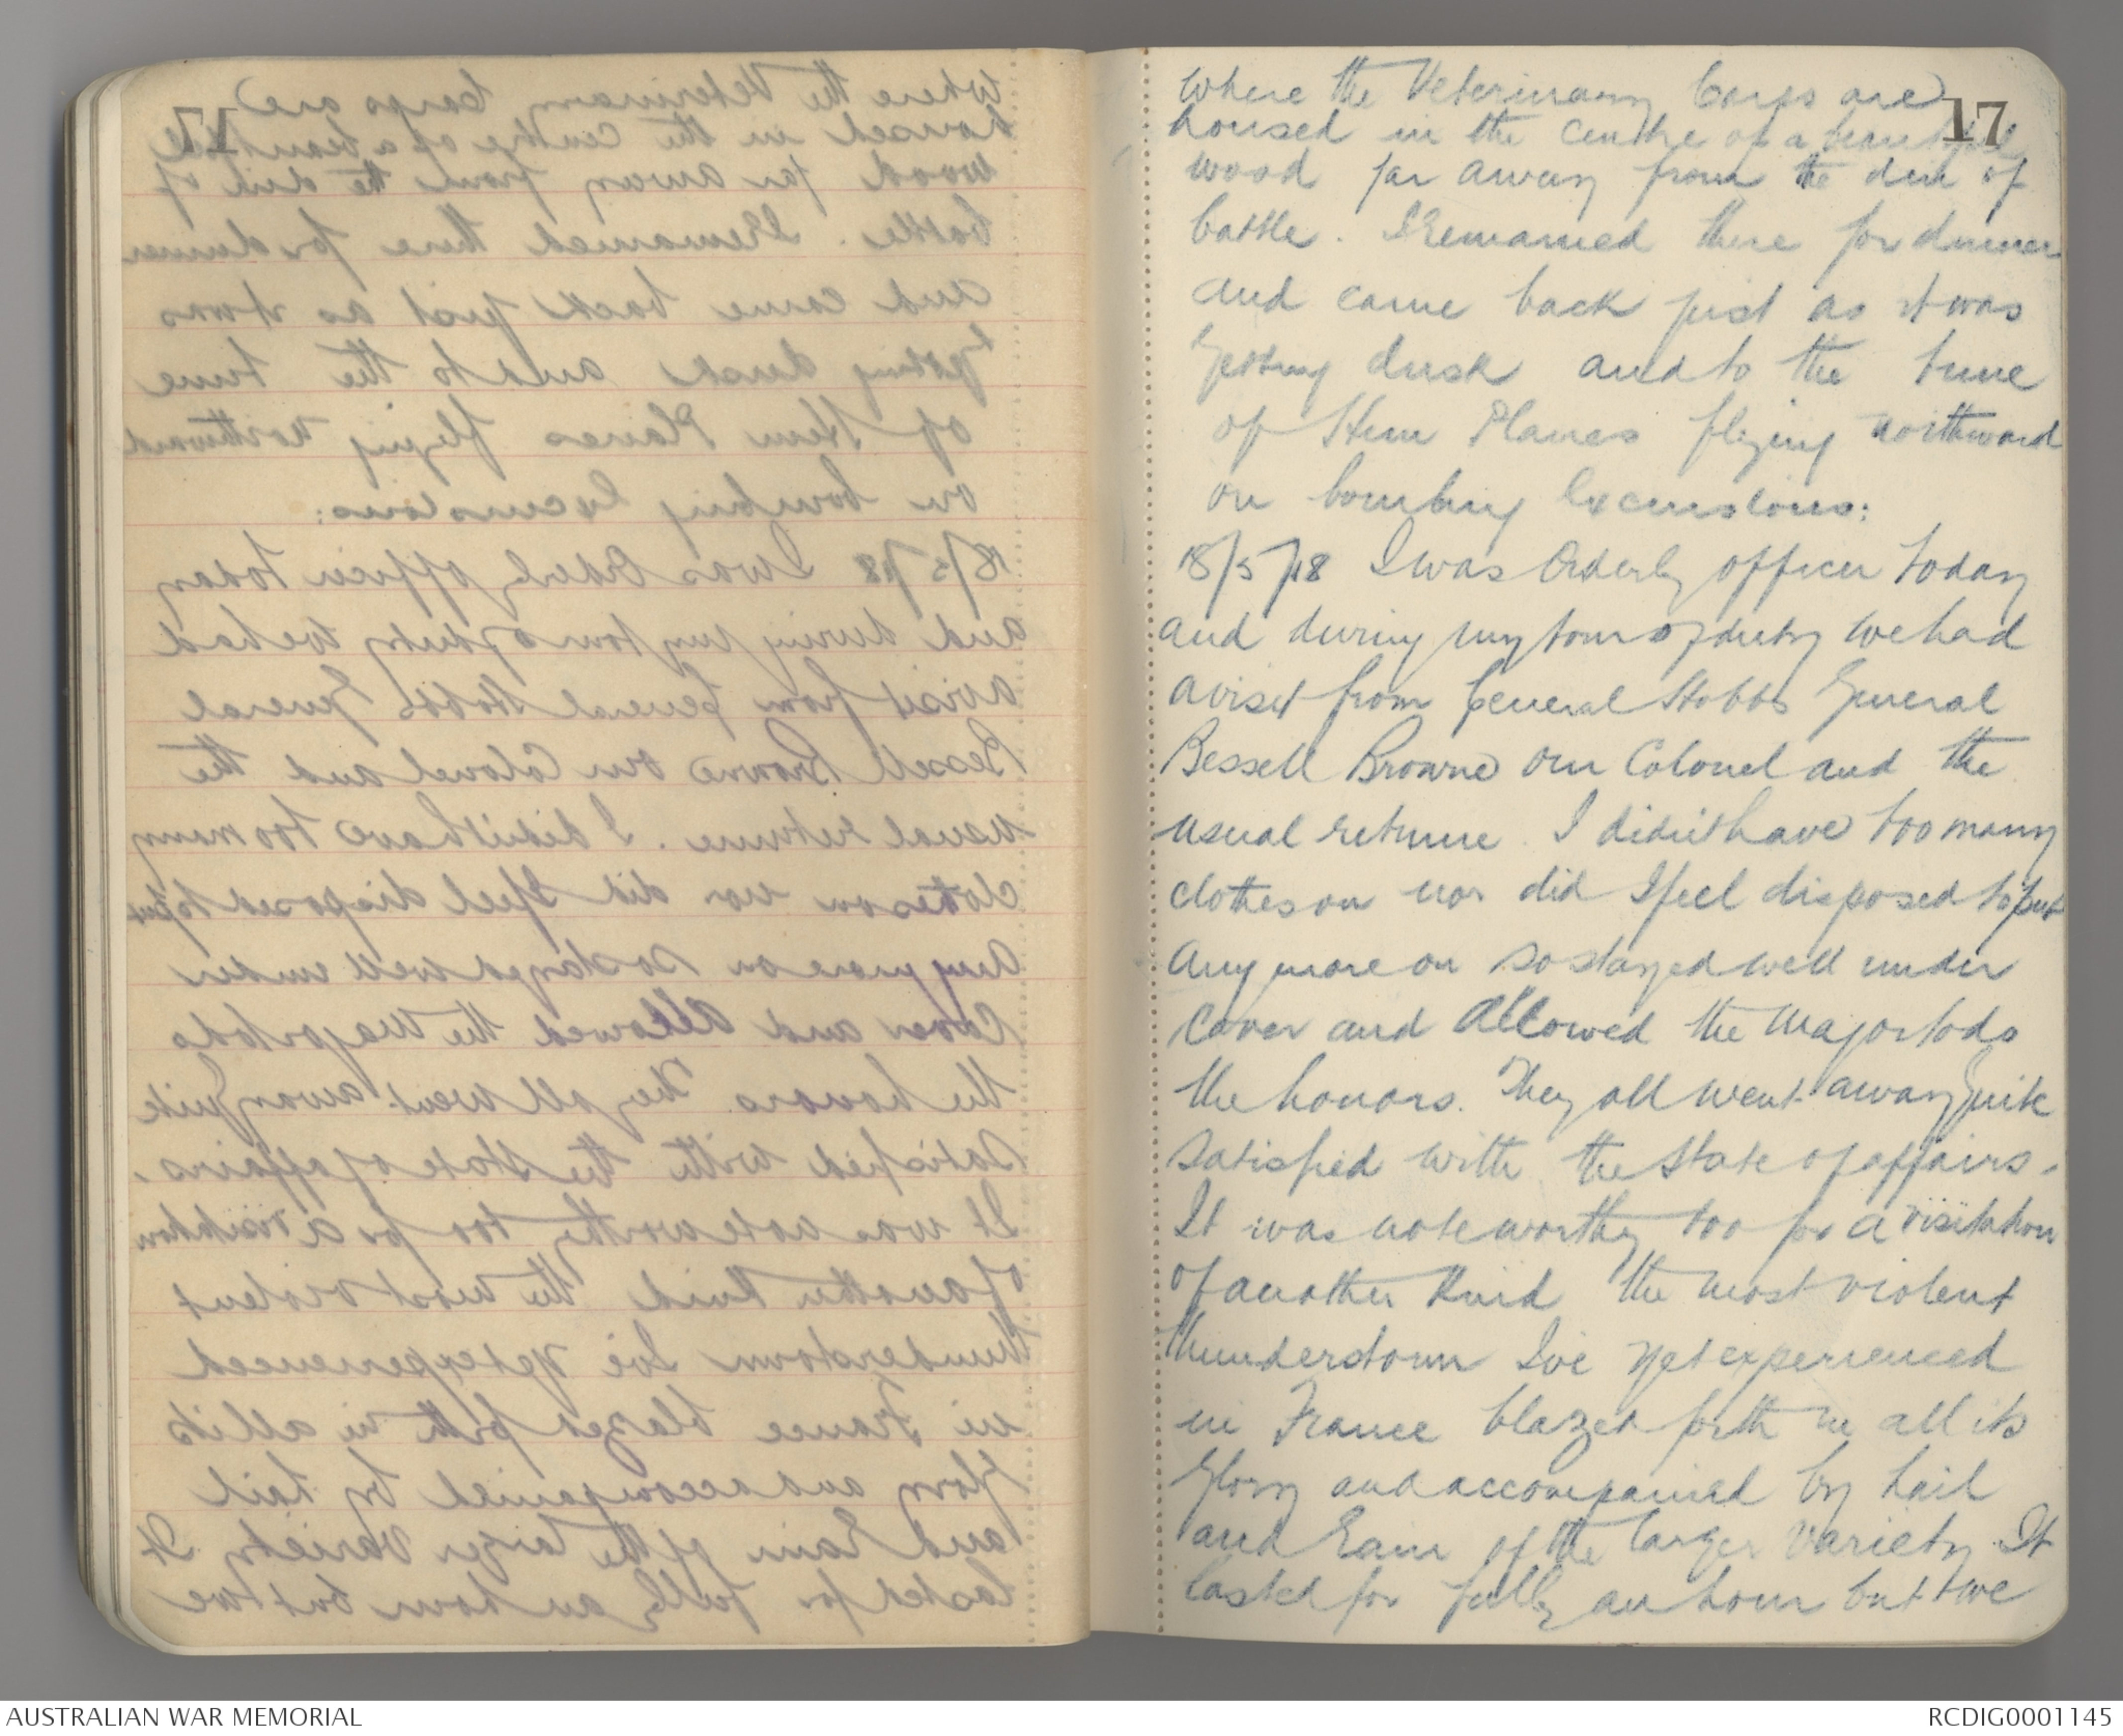 17
where the Veterinary Corps are
housed in the centre of a beautiful
wood far away from the din of
battle. I remained there for dinner
and came back just as it was
getting dusk and to the tune
of Hun Planes flying northward
on bombing excursions:
18/5/18 I was Orderly officer today
and during my tour of duty we had
a visit from General Hobbs General
Bessell Browne our Colonel and the
usual retinue. I didn't have too many
clothes on nor did I feel disposed to put
any more on so stayed well under
cover and allowed the Major to do
the honors. They all went away quite
satisfied with the state of affairs.
It was noteworthy too for a visitation
of another kind the most violent
thunderstorm I've yet experienced
in France blazed forth in all its
glory and accompanied by hail
and rain of the larger variety. It
lasted for fully an hour but we
AUSTRALIAN WAR MEMORIAL
RCDIG0001145